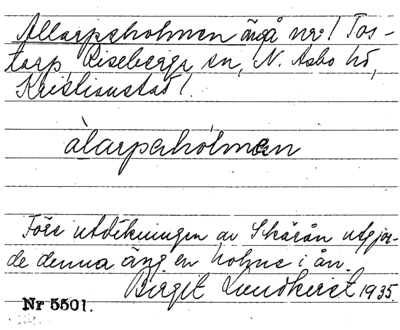 Allarpsholmen äng å nr 1 Tos-
tarp Riseberga sn, N. Åsbo hd,
Kristianstad l.
àlarpshòlmen
Före utdikningen av Skärån utgjor-
de denna äng en holme i ån.
Birgit Lundkvist 1935.
Nr 5501.